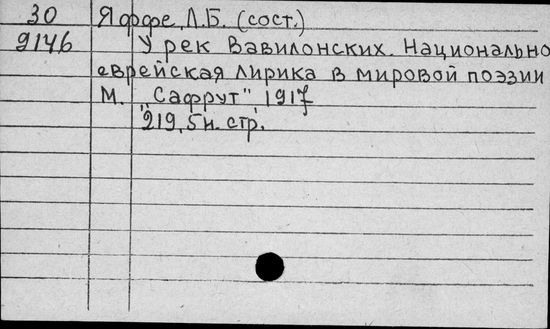 30 Яффе, Л.Б. (сост.)
9146 У рек Вавилонских. Национально
еврейская лирика в мировой поэзии
М. "Сафрут" 1917
219, 5 н. стр.